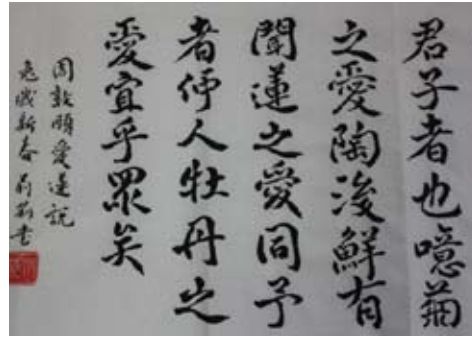 君子者也噫菊
之愛陶後鮮有
聞蓮之愛同予
者何人牡丹之
愛宜乎眾矣
周敦頤愛蓮說
兔歲新春書